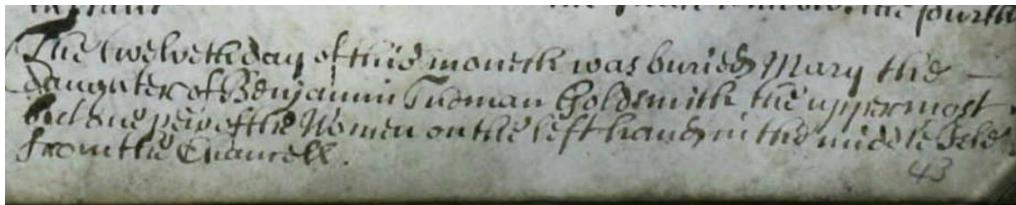 the fourth
The twelveth day of this moneth was buried Mary the
daughter of Benjamin Tudman Goldsmith the uppermost
but one pew of the Women on the left hand in the middle Isle
from the Chancell.
43